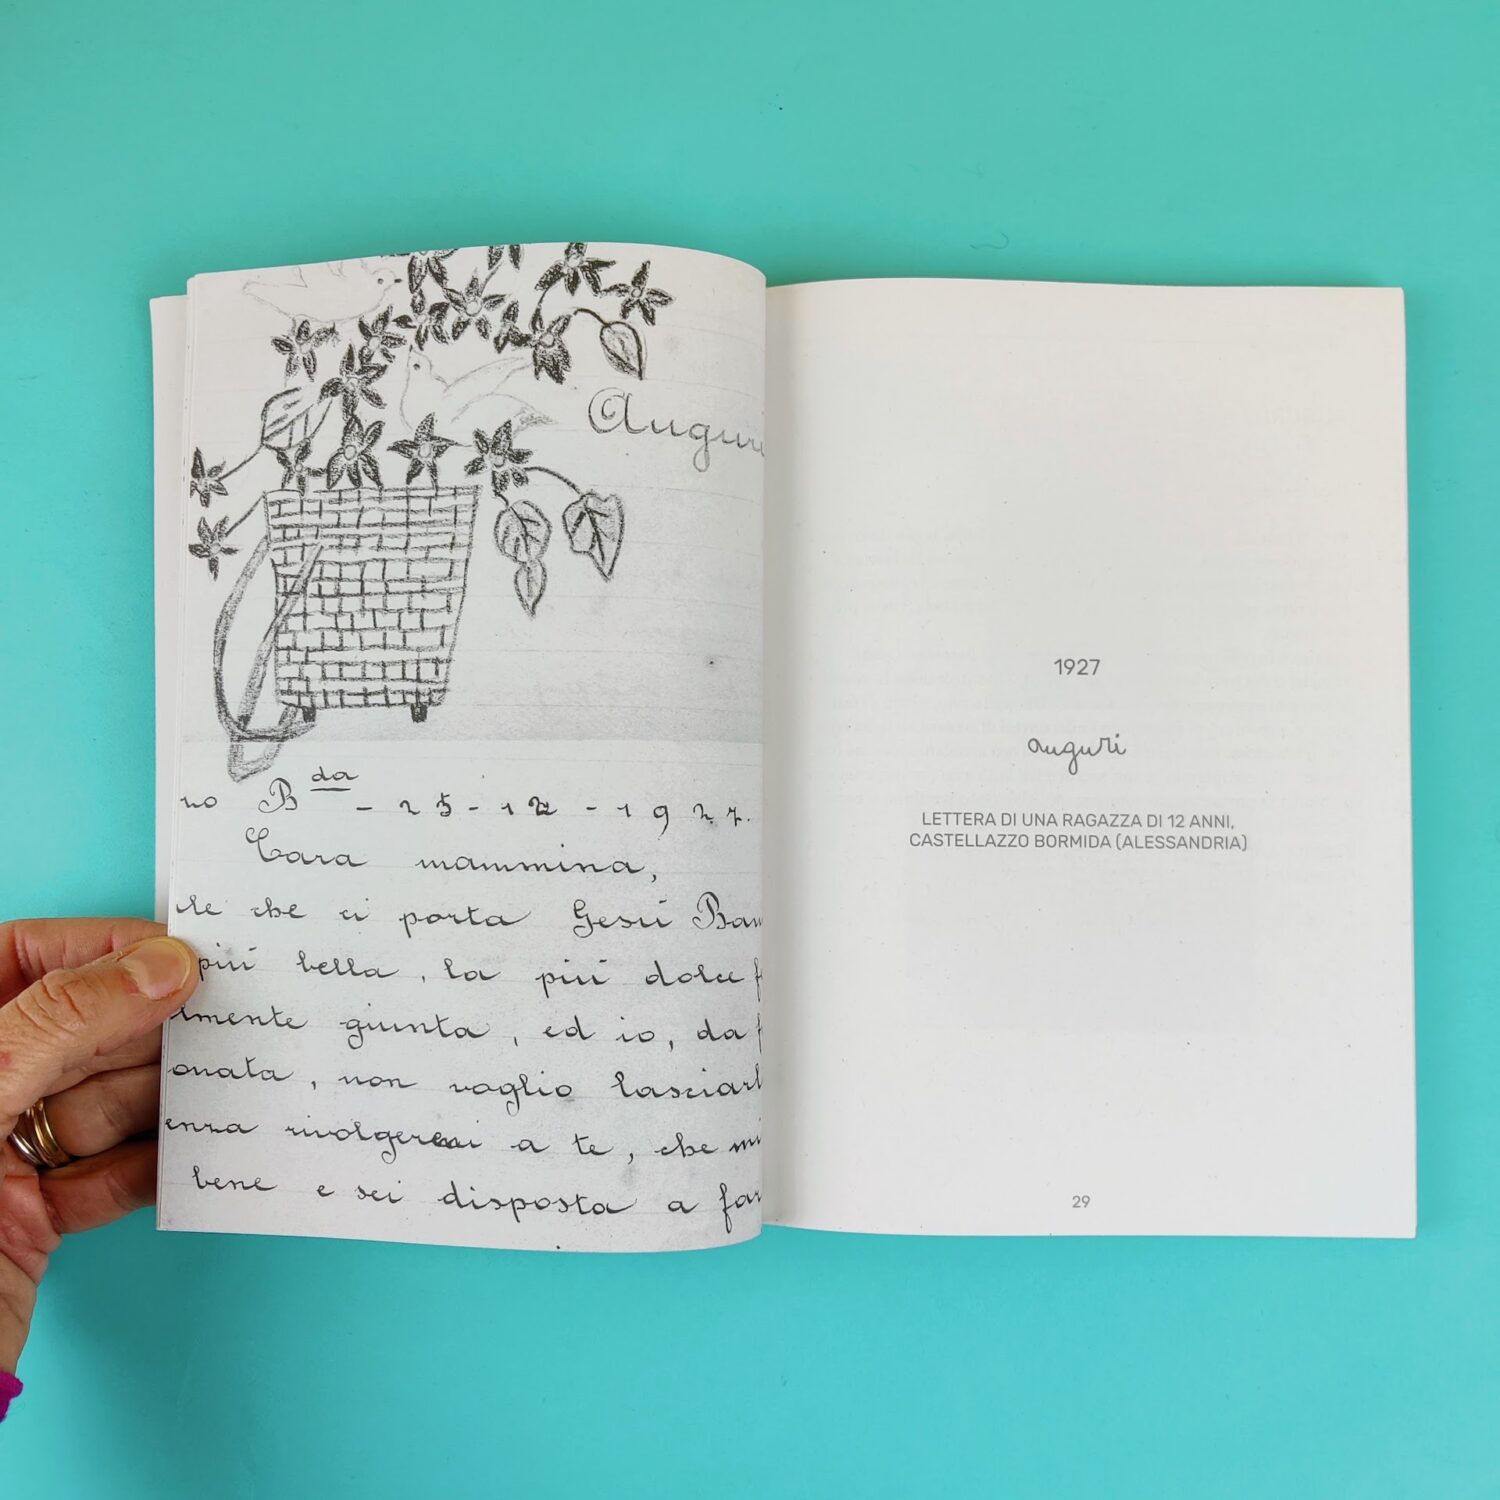 Auguri
no Bda - 25-12-1927.
Cara mammina,
le che ci porta Gesù Bam
più bella, la più dolce f
lmente giunta, ed io, da f
onata, non voglio lasciarl
enza rivolgermi a te, che mi
bene e sei disposta a far
1927
auguri
LETTERA DI UNA RAGAZZA DI 12 ANNI,
CASTELLAZZO BORMIDA (ALESSANDRIA)
29